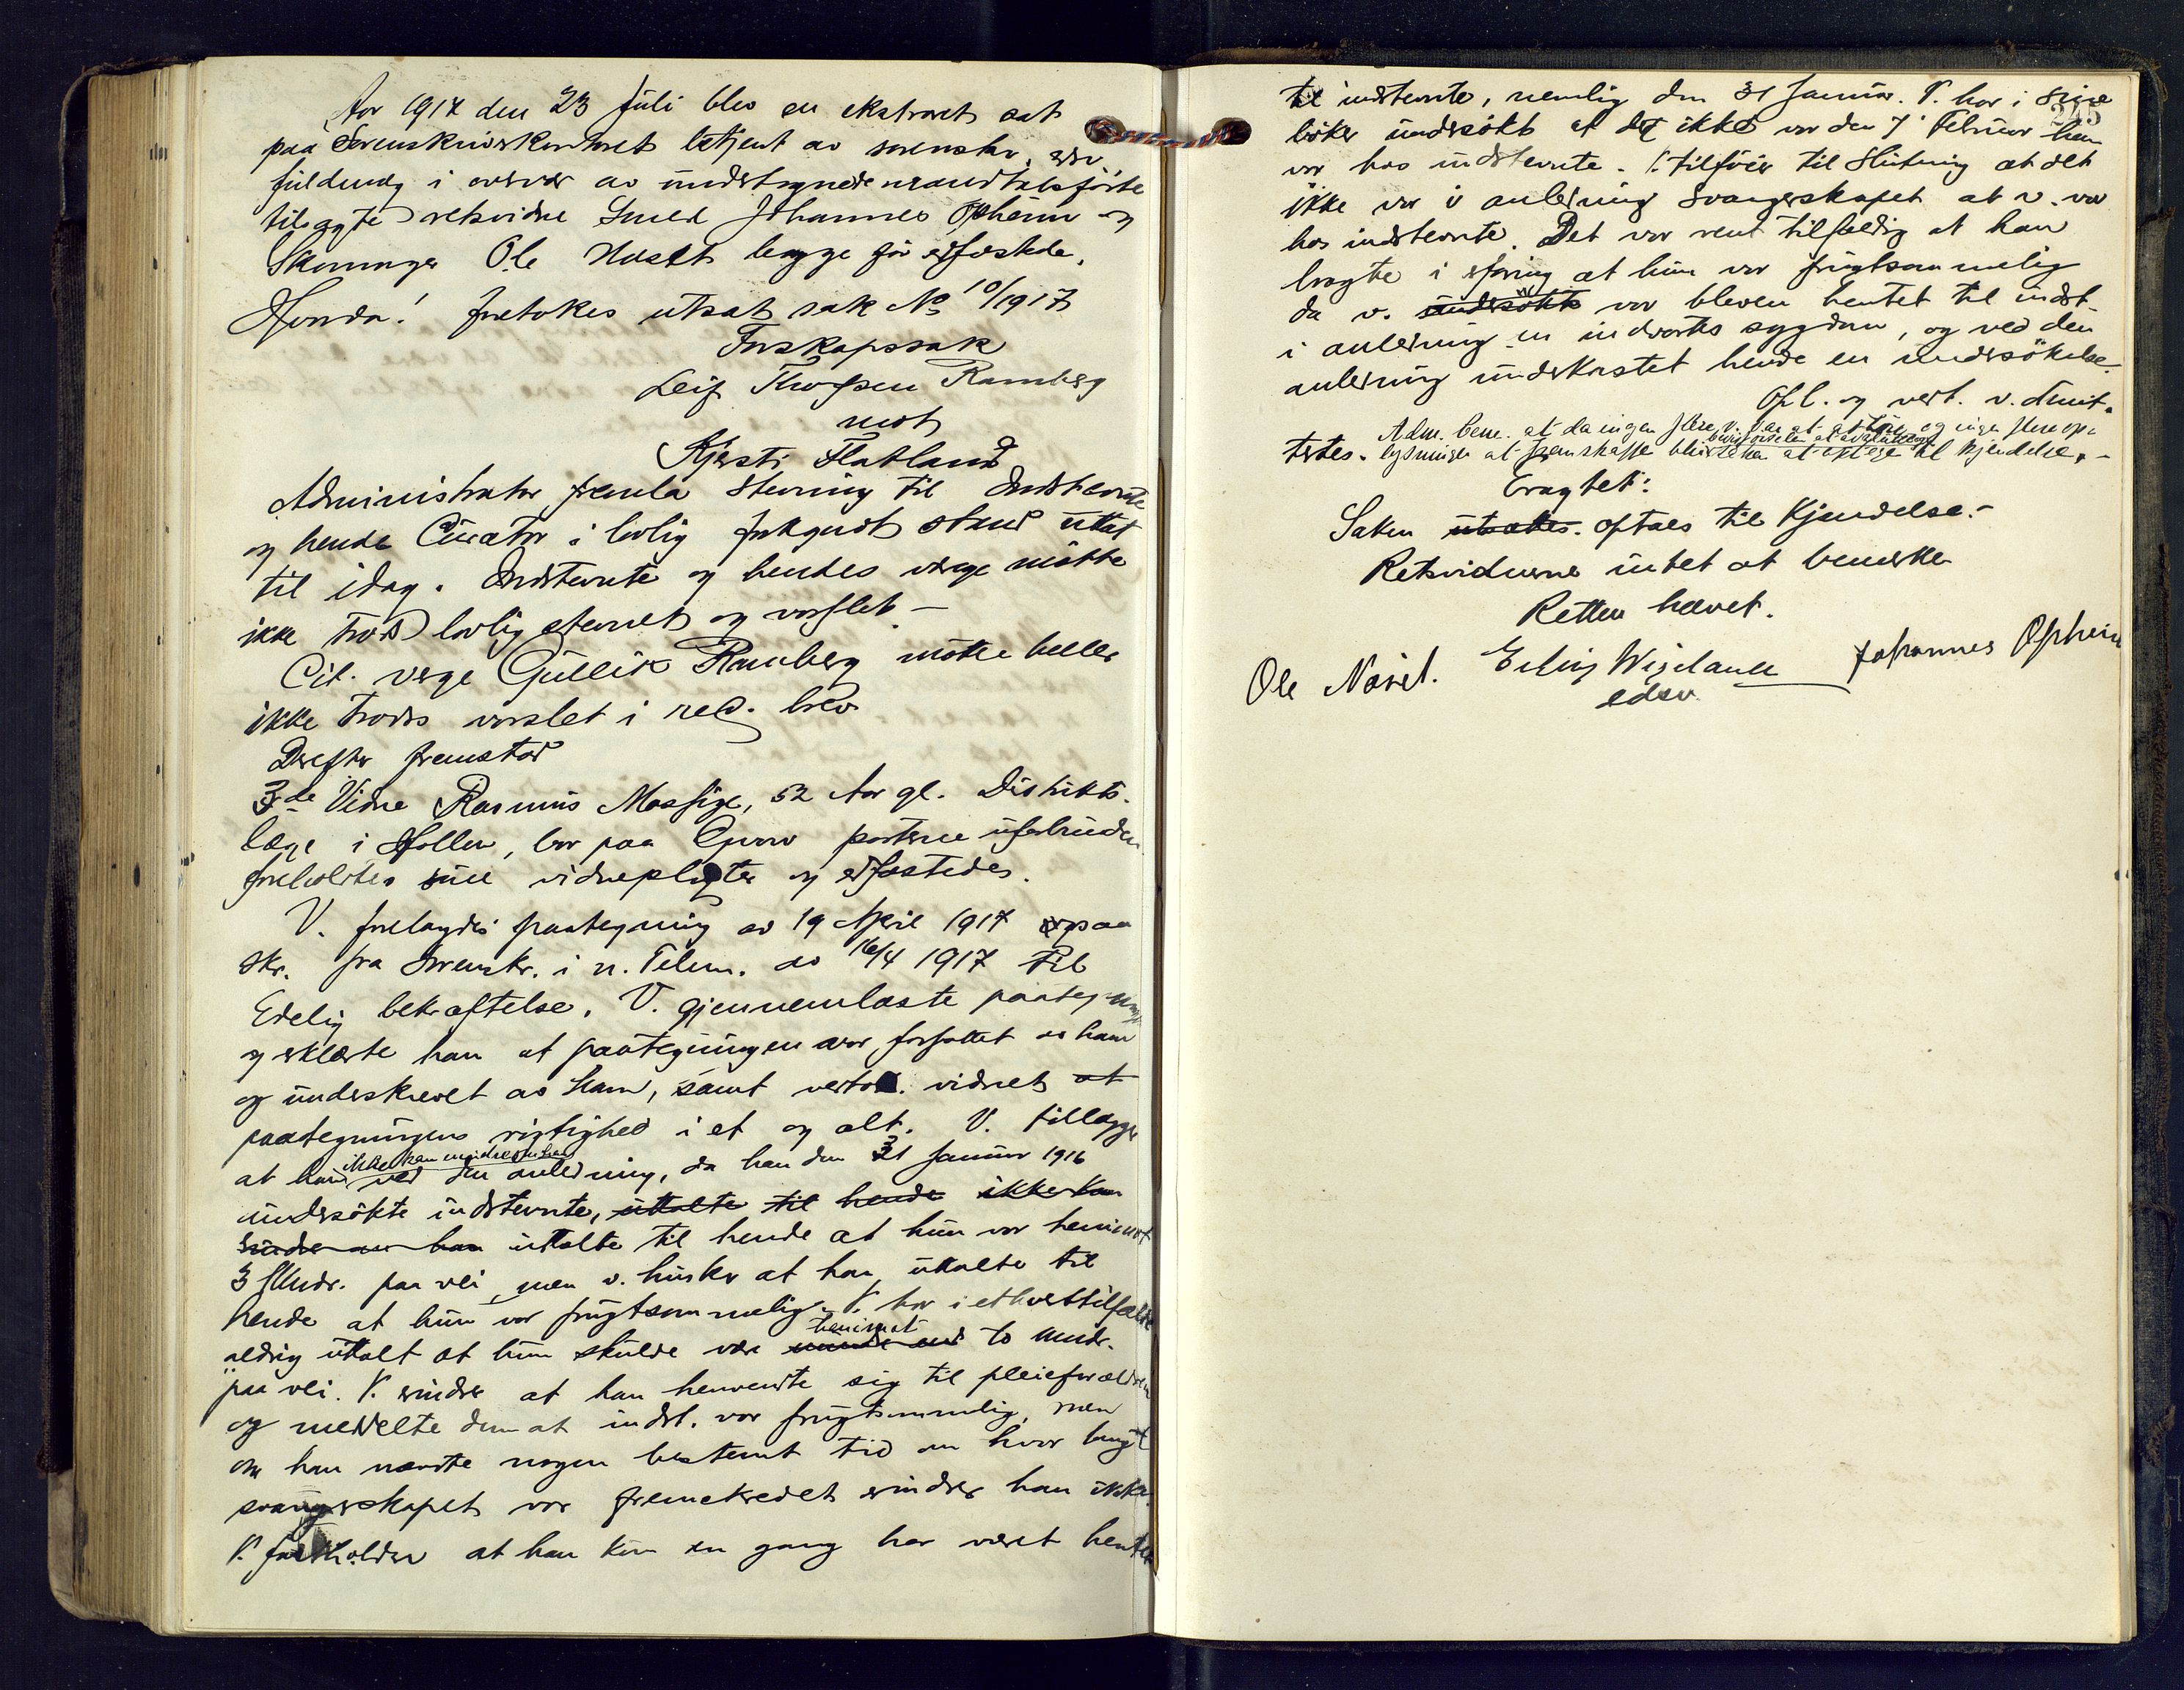 Aar 1917 den 23 Juli blev en ekstraret sat
paa Sorenskriverkontoret betjent av sorenskr. edsv.
fuldmæg i overvær av undertegnede mandtalsførte
tilsagte retsvidne Smed Johannes Opheim og
Ole begge før edfæstede.
Hvorda! foretokes utsat sak No 10/1917
Farskapssak
Leif Thorsen Ramberg
mot
Kjersti Flatland
Administrator fremla stevning til Indstevnte
og hende Curator i lovlig forkyndt stand utsat
til idag. Indstevnte og hendes verge møtte
ikke trods lovlig stevnet og varslet. –
Cit. verge Gullik Ramberg møtte heller
ikke trods varslet i rek. brev
Derefter fremstod
3de Vidne Rasmus Mossige, 52 Aar gl. Distrikts-
læge i Hollen, bor paa parterne uforbunden
foreholdtes sine vidnepligter og edfæstedes.
V. forelagdes paategning av 19 April 1917 paa
skr. fra Sorenskr. i n. Telem. av 16/4 1917 til
Edelig bekræftelse. V. gjennemlæste paategningen
og erklærte han at paategningen var forfattet av ham
og underskrevet av ham, samt vidnet at
paategningens rigtighed i et og alt. V. tillægger
ikke kan erindre om han
at han ved den anledning, da han den 31 Januar 1916
undersøkte indstevnte, uttalte til hende ikke kan
erindre om han uttalte til hende at hun var henimot
3 Mndr. paa vei, men v. husker at han uttalte til
hende at hun var frugtsommelig. V. har i ethvert tilfælde
henimot
aldrig uttalt at hun skulde være mindre end to Mndr.
paa vei. V. erindrer at han henvendte sig til pleieforældrene
og meddelte dem at indst. var frugtsommelig, men
om han nævnte nogen bestemt tid om hvor langt
svangerskapet var fremskredet erindrer han ikke.
V. fastholder at han kun en gang har været hentet
245
til indstevnte, nemlig den 31 Januar. V. har i sine
bøker undersøkt at det ikke var den 7 Februar han
var hos indstevnte. V. tilføier til Slutning at det
ikke var i anledning Svangerskapet at v. var
hos indstevnte. Det var rent tilfældig at han
bragte i erfaring at hun var frugtsommelig
da v. undersøkte var bleven hentet til indst.
i anledning en indvortes sygdom, og ved den
anledning underkastet hende en undersøkelse.
Opl. og vedt. v. demit-
Adm. bem. at da ingen flere v. var at avhøre og ingen flere op-
tertes. lysninger at fremskaffe bevisførselen at avslutte og at optage til kjendelse. –
Eragtet:
Saken utsættes. optaes til Kjendelse. –
Retsvidnerne intet at bemerke
Retten hævet.
Ole Erling Wigeland Johannes Opheim
edsv.